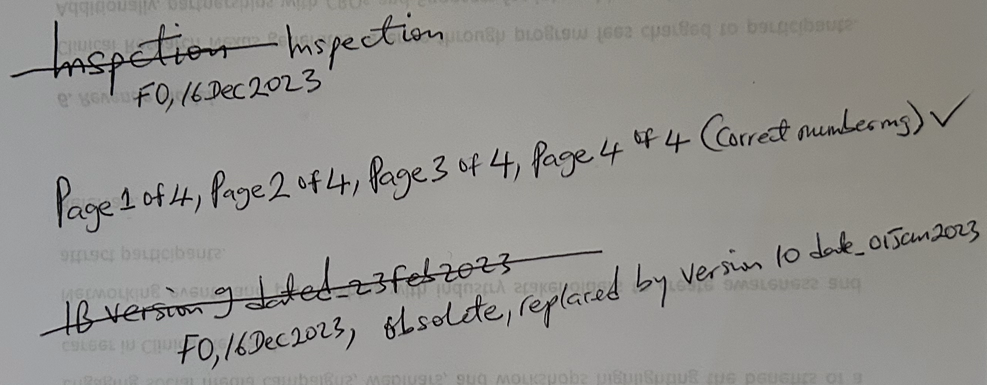 Inspction Inspection
FO, 16 Dec 2023
Page 1 of 4, Page 2 of 4, Page 3 of 4, Page 4 of 4 (Correct numbering) ✓
IB version 9 dated_23Feb2023
FO, 16 Dec 2023, obsolete, replaced by version 10 date_01Jan2023